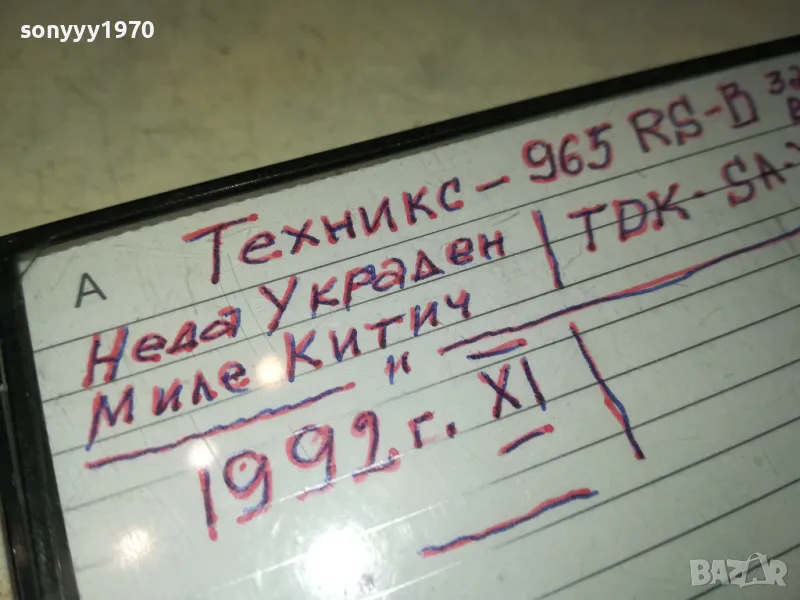 sonyyy1970
Техникс - 965 RS-B
A
Неда Украден | TDK - SA-
Миле Китич "
1992 г. XI
BAZAR